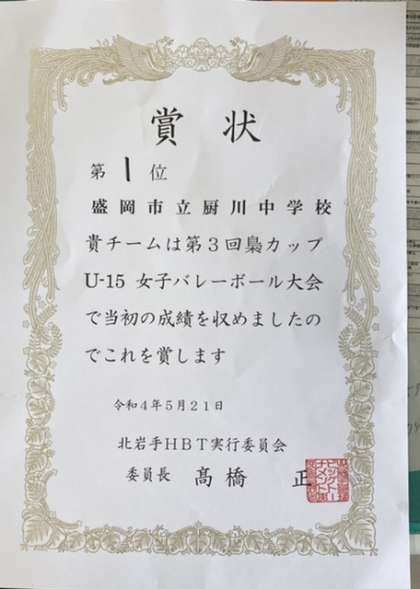 賞状
第1位
盛岡市立厨川中学校
貴チームは第3回梟カップ
U-15 女子バレーボール大会
で当初の成績を収めましたの
でこれを賞します
令和4年5月21日
北岩手HBT実行委員会
委員長 髙橋 正